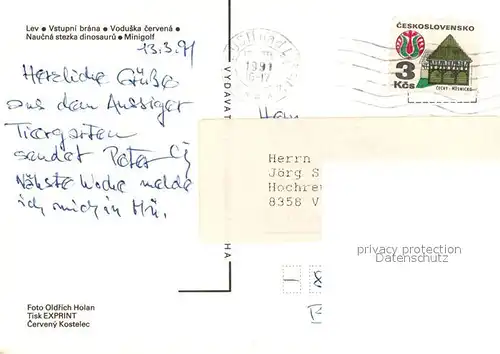 Lev • Vstupní brána • Voduška červená •
Naučná stezka dinosaurů • Minigolf
13.3.91
Herzliche Grüße
aus dem Aussiger
Tiergarten
sendet Peter
Nähste Woche melde
ich mich in Mü.
Foto Oldřich Holan
Tisk EXPRINT
Červený Kostelec
VYDAVAT
HA
1991
ČESKOSLOVENSKO
3
Kčs
ČECHY - MĚLNICKO
Herrn
Jörg S
Hochre
8358 V
privacy protection
Datenschutz